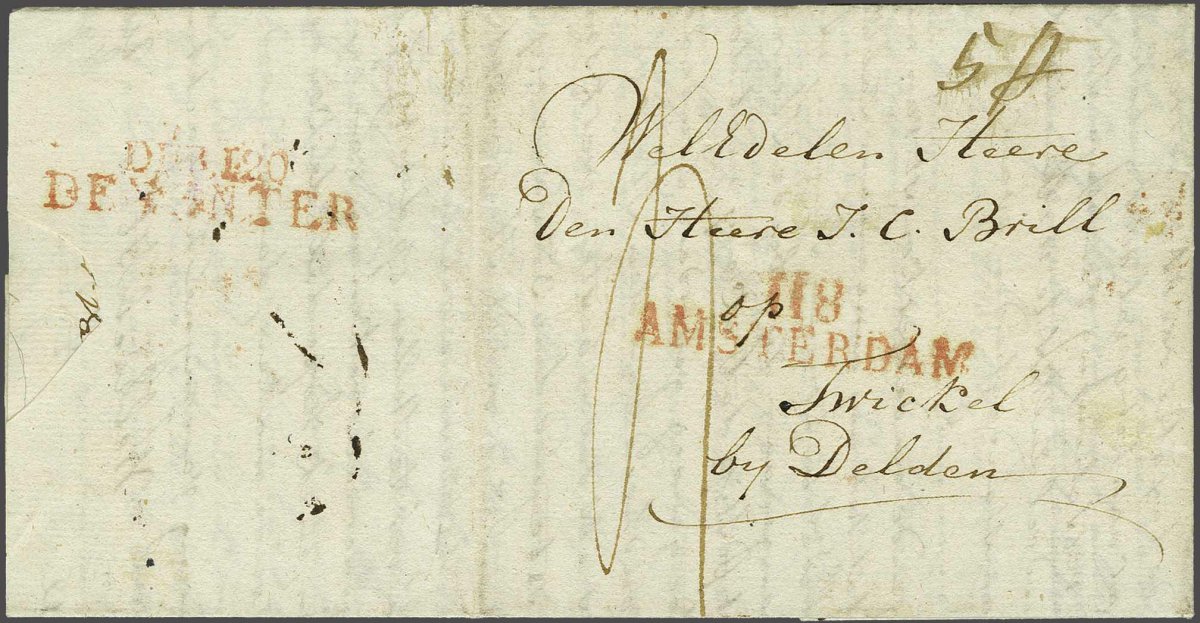 5
WelEdelen Heere
Den Heere J. C. Brill
op
118
AMSTERDAM
Twickel
by Delden
DEB.120
DEVENTER